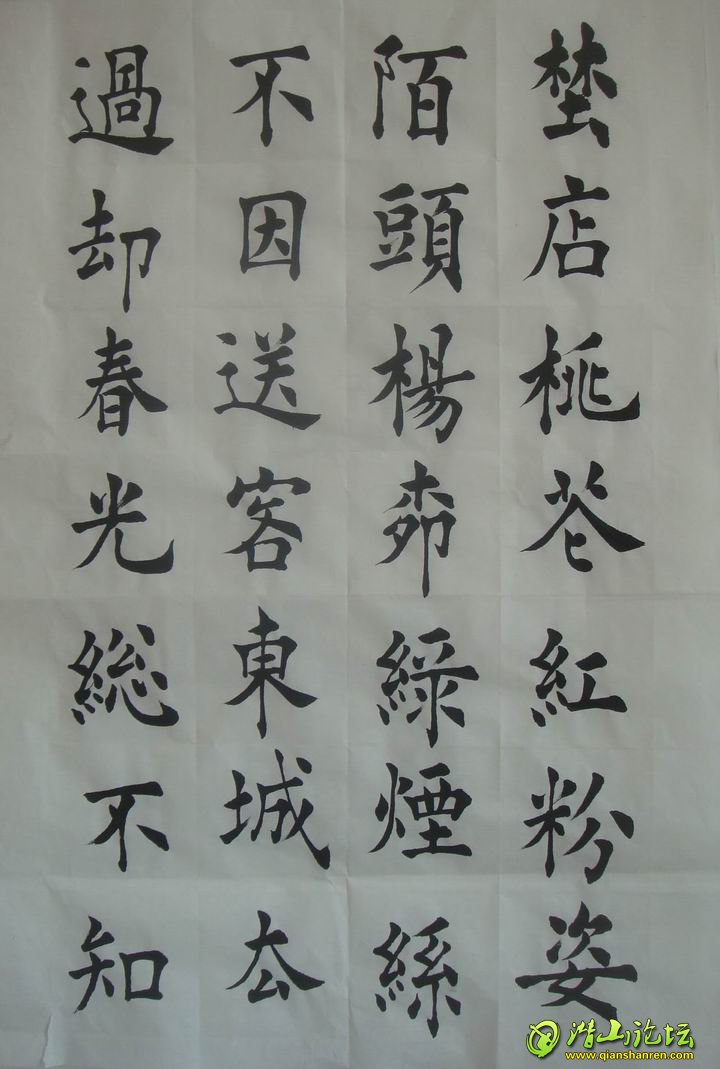 埜店桃花紅粉姿
陌頭楊柳緑煙絲
不因送客東城厺
過却春光総不知
潜山论坛
www.qianshanren.com